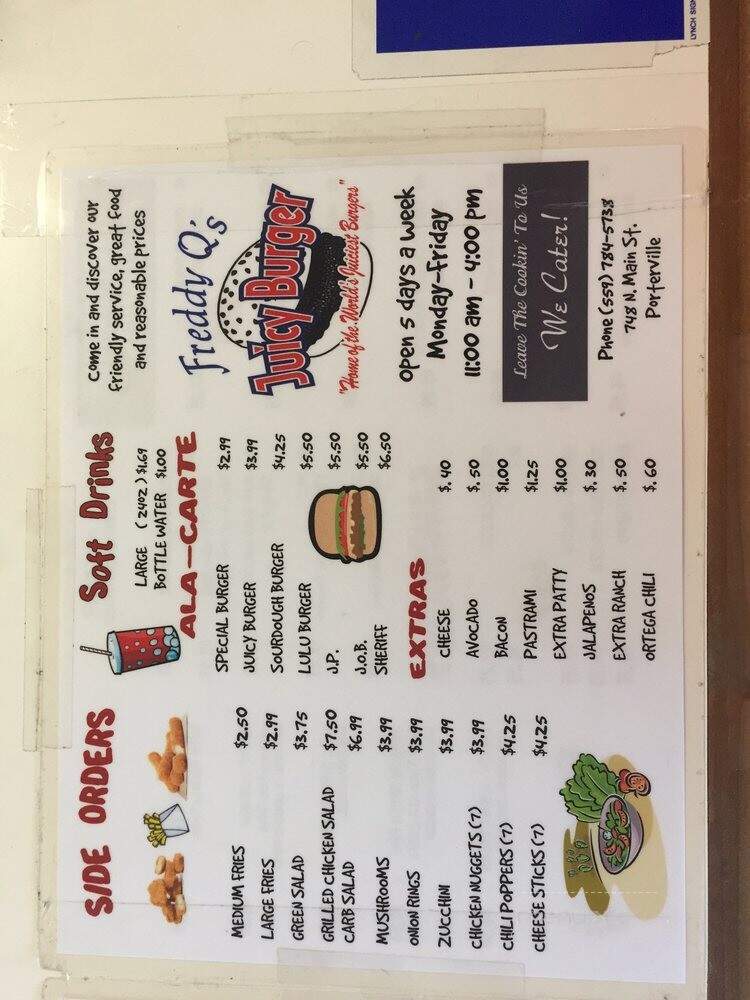 SIDE ORDERS
MEDIUM FRIES $2.50
LARGE FRIES $2.99
GREEN SALAD $3.75
GRILLED CHICKEN SALAD $7.50
CARB SALAD $6.99
MUSHROOMS $3.99
ONION RINGS $3.99
ZUCCHINI $3.99
CHICKEN NUGGETS (7) $3.99
CHILI POPPERS (7) $4.25
CHEESE STICKS (7) $4.25
Soft Drinks
LARGE ( 24OZ ) $1.69
BOTTLE WATER $1.00
ALA-CARTE
SPECIAL BURGER $2.99
JUICY BURGER $3.99
SOURDOUGH BURGER $4.25
LULU BURGER $5.50
J.P. $5.50
J.O.B. $5.50
SHERIFF $6.50
EXTRAS
CHEESE $. 40
AVOCADO $. 50
BACON $1.00
PASTRAMI $1.25
EXTRA PATTY $1.00
JALAPENOS $. 30
EXTRA RANCH $. 50
ORTEGA CHILI $. 60
Come in and discover our
friendly service, great food
and reasonable prices
Freddy Q's
Juicy Burger
"Home of the World's Juiciest Burgers"
Open 5 days a week
Monday-Friday
11:00 am - 4:00 pm
Leave The Cookin' To Us
We Cater!
Phone (559) 784-5738
748 N. Main St.
Porterville
LYNCH SIGN